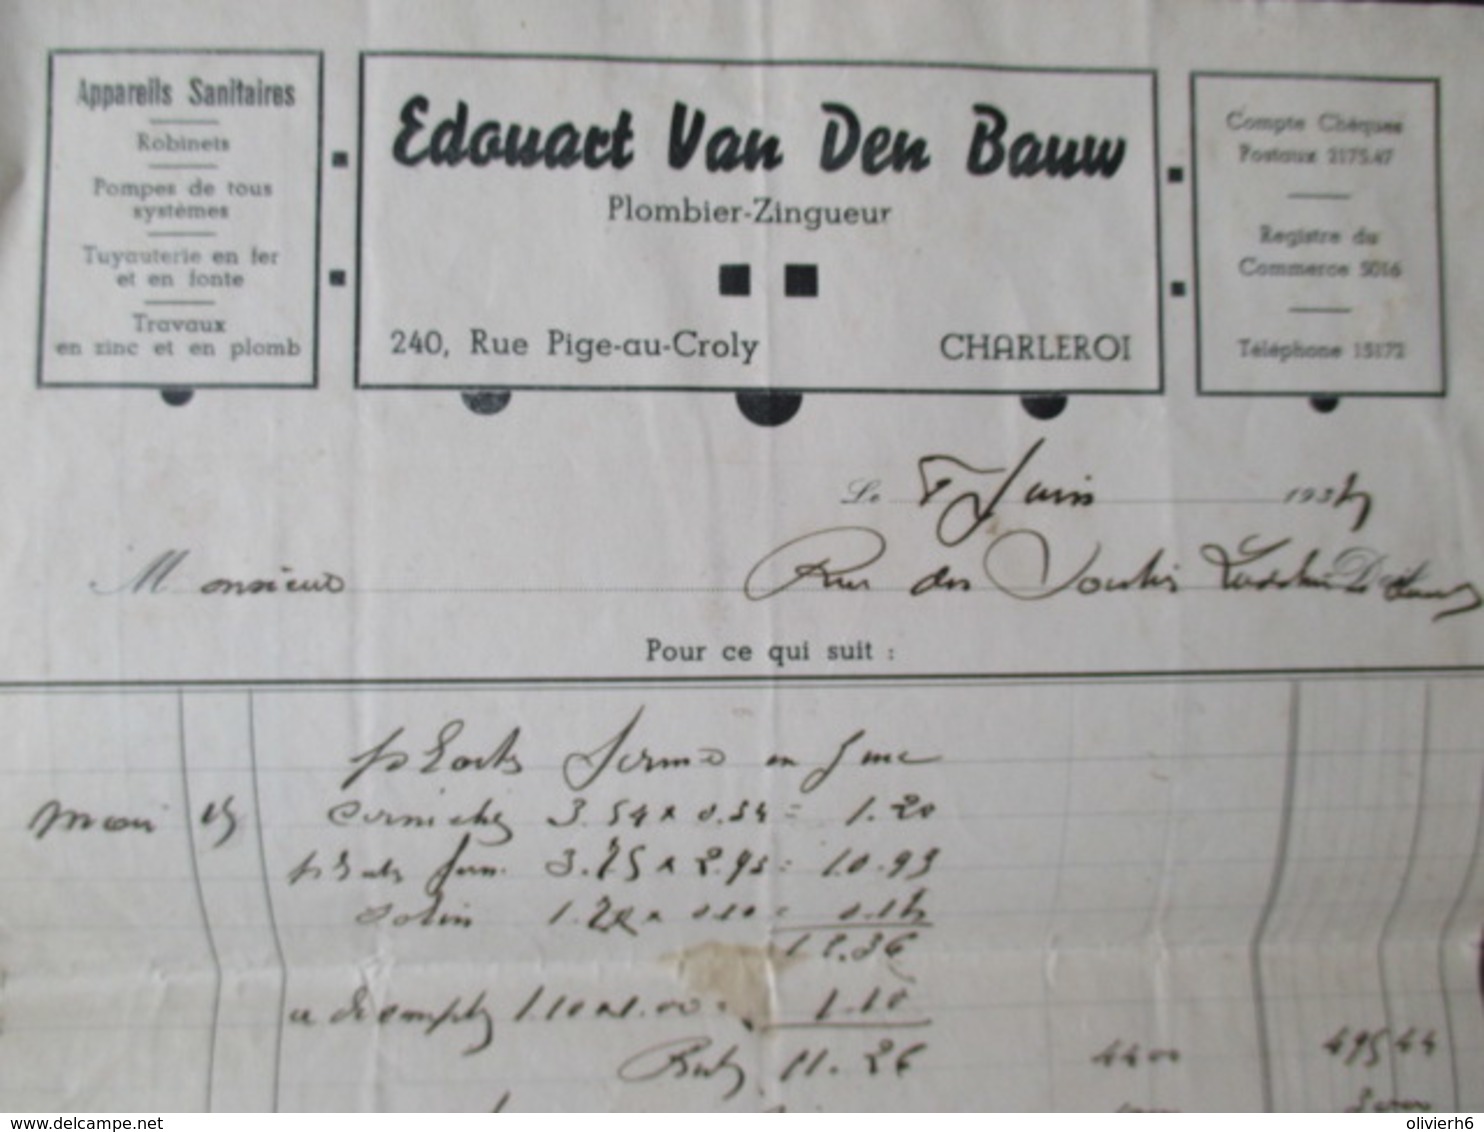 Appareils Sanitaires
Robinets
Pompes de tous
systèmes
Tuyauterie en fer
et en fonte
Travaux
en zinc et en plomb
Edouart Van Den Bauw
Plombier-Zingueur
240, Rue Pige-au-Croly CHARLEROI
Compte Chèques
Postaux 2175.47
Registre du
Commerce 5016
Téléphone 15172
Le 8 Juin 193
Monsieur Rue des
Pour ce qui suit :
en zinc
corniches 3.54 x 0.34 = 1.20
3.75 x 2.95 = 10.93
12.36
1.10 x 1.00 = 1.10
11.26 44 00 495 44
delcampe.net
olivierh6